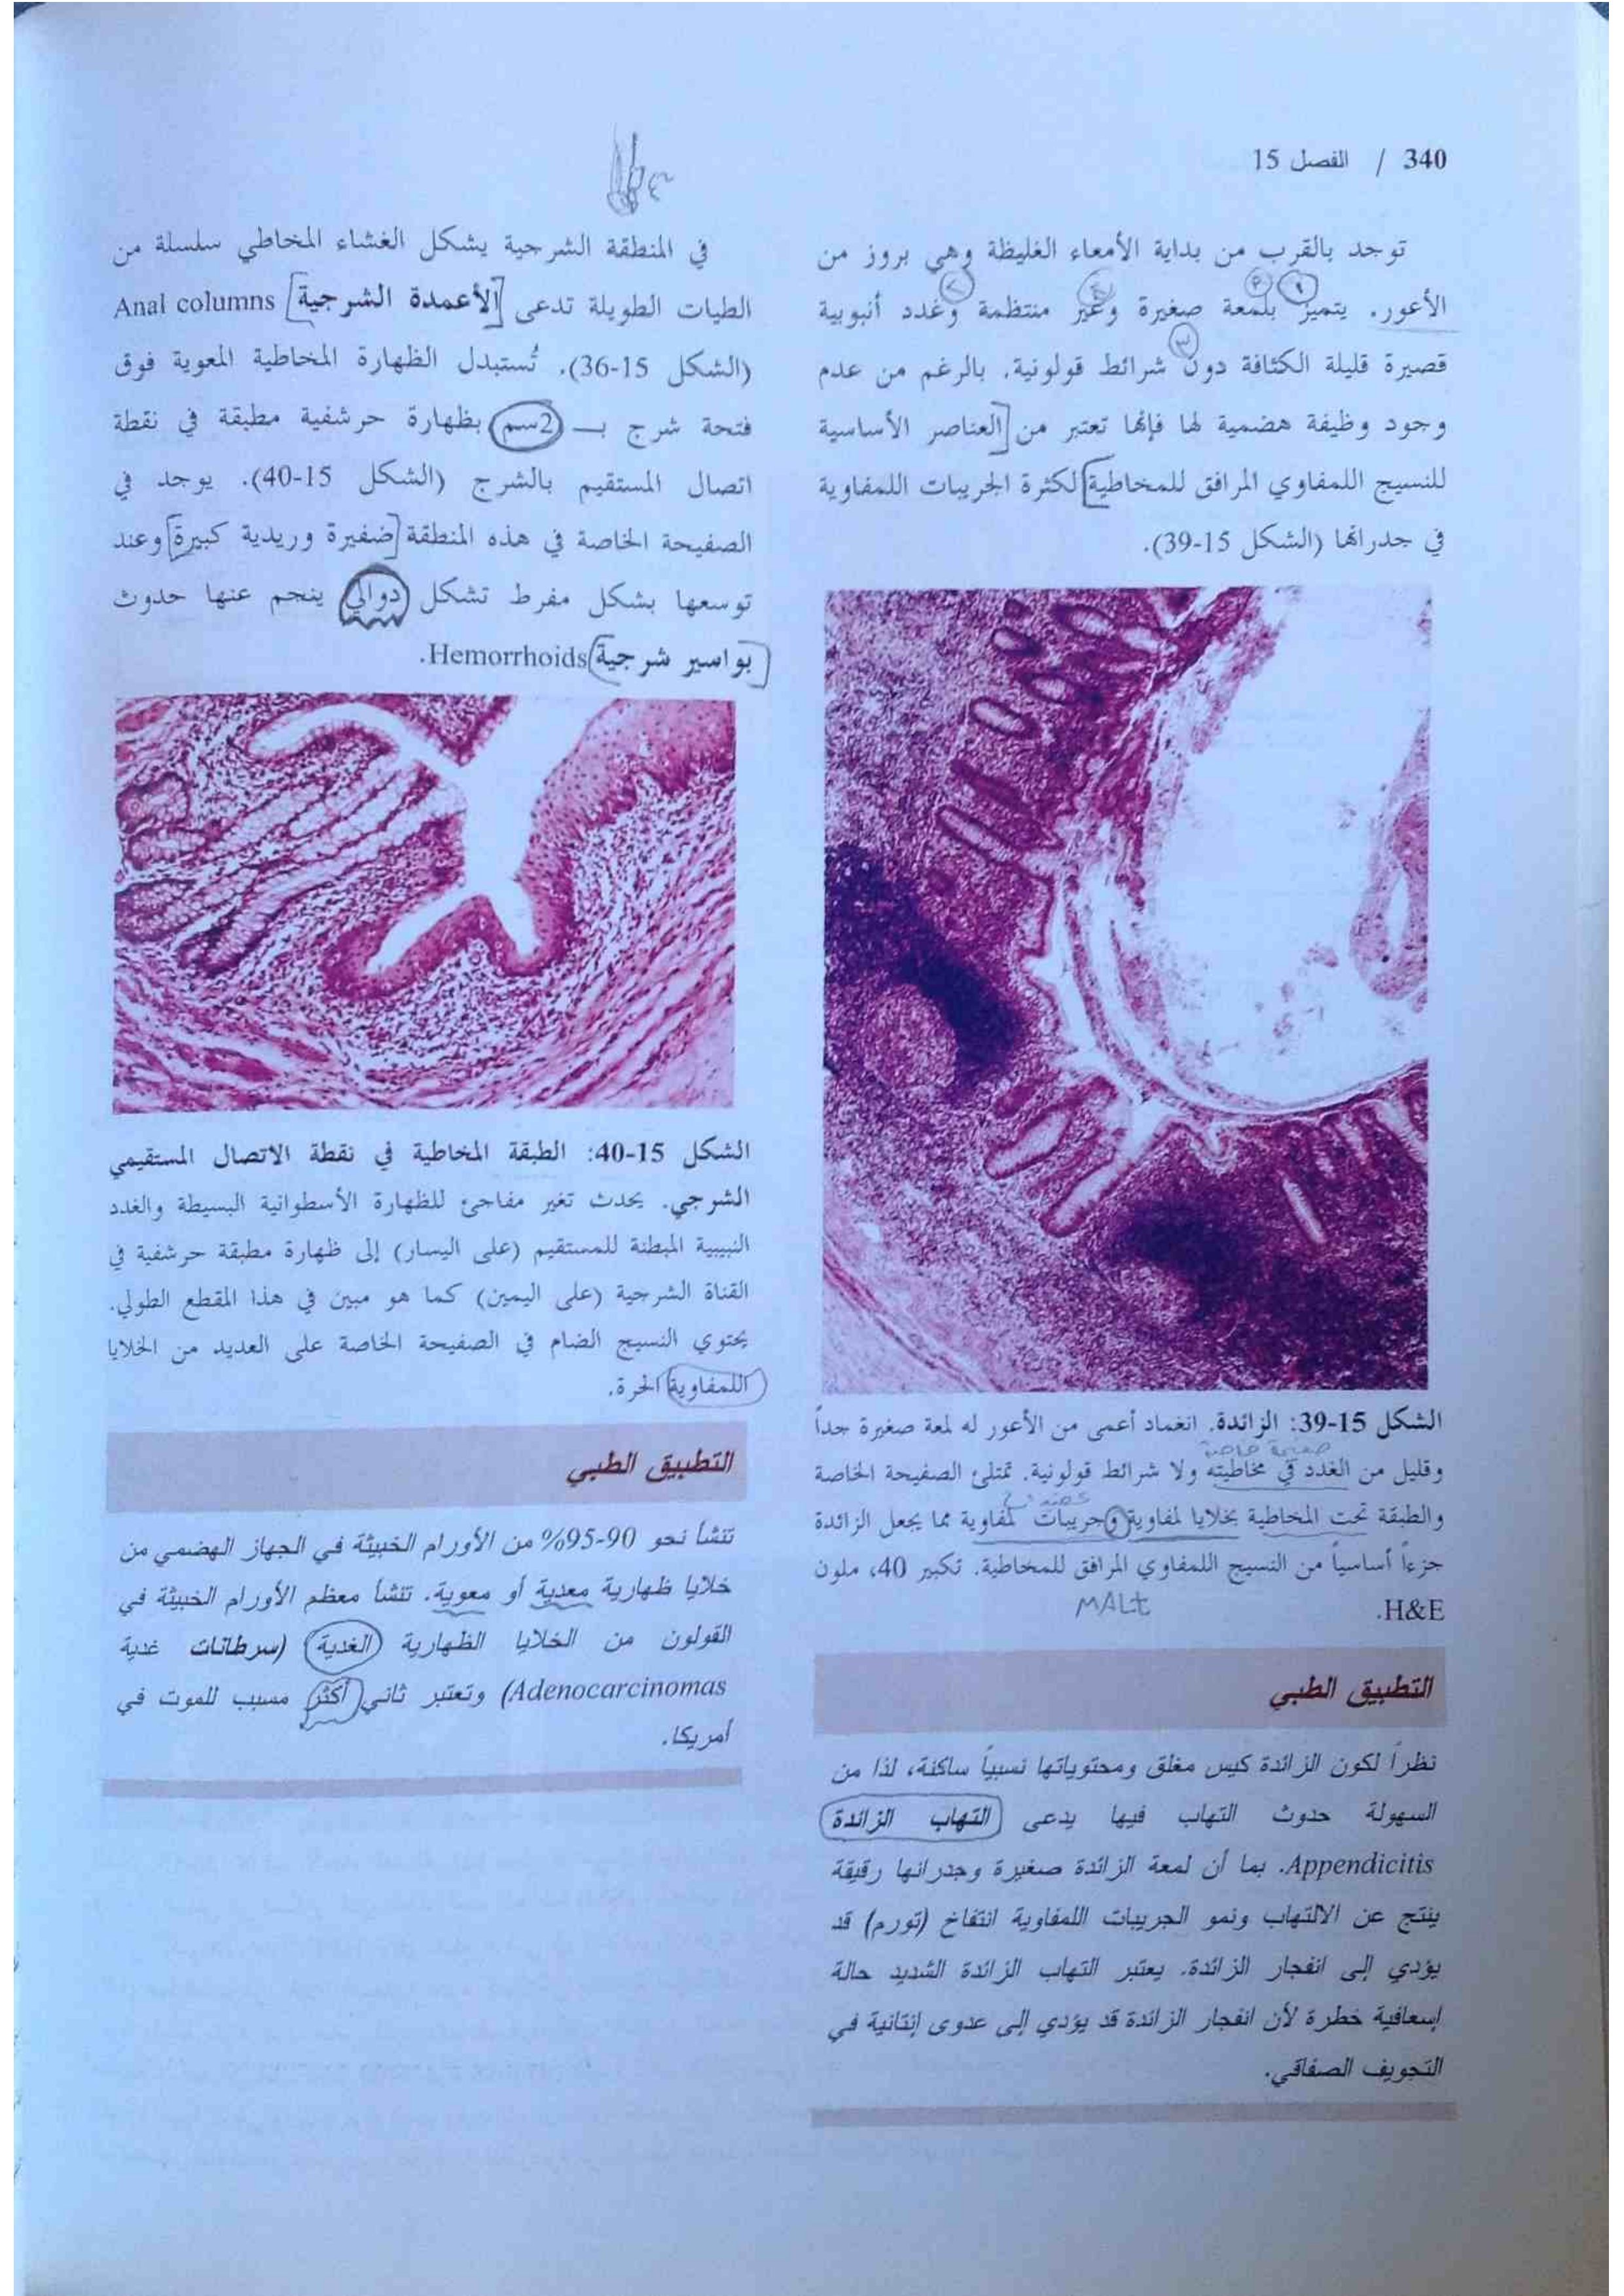 340 / الفصل 15
توجد بالقرب من بداية الأمعاء الغليظة وهي بروز من
الأعور. يتميز بلمعة صغيرة وغير منتظمة وغدد أنبوبية
قصيرة قليلة الكثافة دون شرائط قولونية. بالرغم من عدم
وجود وظيفة هضمية لها فإنها تعتبر من [العناصر الأساسية
للنسيج اللمفاوي المرافق للمخاطية] لكثرة الجريبات اللمفاوية
في جدرانها (الشكل 15-39).
الشكل 15-39: الزائدة. انغماد أعمى من الأعور له لمعة صغيرة جداً
صفيحة خاصة
وقليل من الغدد في مخاطيته ولا شرائط قولونية. تمتلئ الصفيحة الخاصة
والطبقة تحت المخاطية بخلايا لمفاوية وجريبات لمفاوية مما يجعل الزائدة
جزءاً أساسياً من النسيج اللمفاوي المرافق للمخاطية. تكبير 40، ملون
MALt
H&E.
التطبيق الطبي
نظراً لكون الزائدة كيس مغلق ومحتوياتها نسبياً ساكنة، لذا من
السهولة حدوث التهاب فيها يدعى التهاب الزائدة
Appendicitis. بما أن لمعة الزائدة صغيرة وجدرانها رقيقة
ينتج عن الالتهاب ونمو الجريبات اللمفاوية انتفاخ (تورم) قد
يؤدي إلى انفجار الزائدة. يعتبر التهاب الزائدة الشديد حالة
إسعافية خطرة لأن انفجار الزائدة قد يؤدي إلى عدوى إنتانية في
التجويف الصفاقي.
في المنطقة الشرجية يشكل الغشاء المخاطي سلسلة من
الطيات الطويلة تدعى [الأعمدة الشرجية] Anal columns
(الشكل 15-36). تُستبدل الظهارة المخاطية المعوية فوق
فتحة شرج بـ 2سم بظهارة حرشفية مطبقة في نقطة
اتصال المستقيم بالشرج (الشكل 15-40). يوجد في
الصفيحة الخاصة في هذه المنطقة [ضفيرة وريدية كبيرة] وعند
توسعها بشكل مفرط تشكل دوالي ينجم عنها حدوث
[بواسير شرجية] Hemorrhoids.
الشكل 15-40: الطبقة المخاطية في نقطة الاتصال المستقيمي
الشرجي. يحدث تغير مفاجئ للظهارة الأسطوانية البسيطة والغدد
النبيبية المبطنة للمستقيم (على اليسار) إلى ظهارة مطبقة حرشفية في
القناة الشرجية (على اليمين) كما هو مبين في هذا المقطع الطولي.
يحتوي النسيج الضام في الصفيحة الخاصة على العديد من الخلايا
اللمفاوية الحرة.
التطبيق الطبي
تنشأ نحو 90-95% من الأورام الخبيثة في الجهاز الهضمي من
خلايا ظهارية معدية أو معوية. تنشأ معظم الأورام الخبيثة في
القولون من الخلايا الظهارية الغدية (سرطانات غدية
Adenocarcinomas) وتعتبر ثاني أكثر مسبب للموت في
أمريكا.